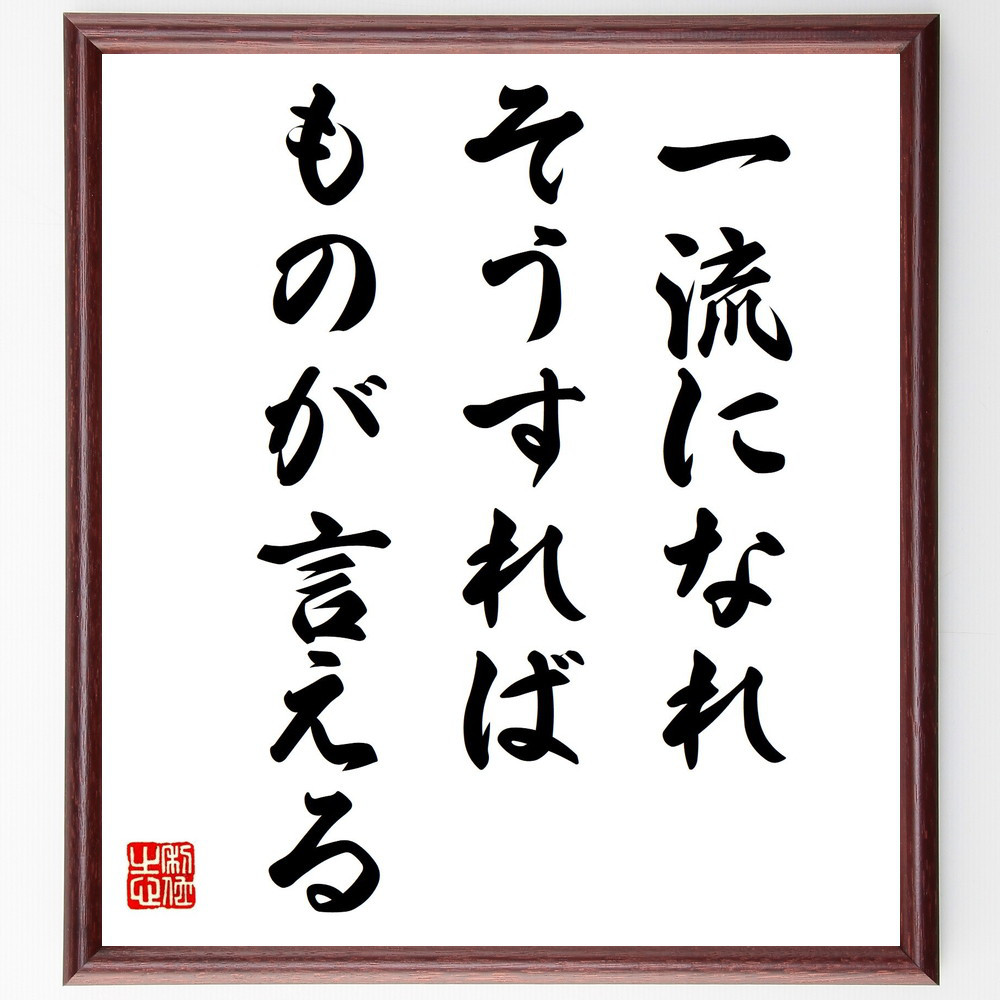 一流になれ
そうすれば
ものが言える